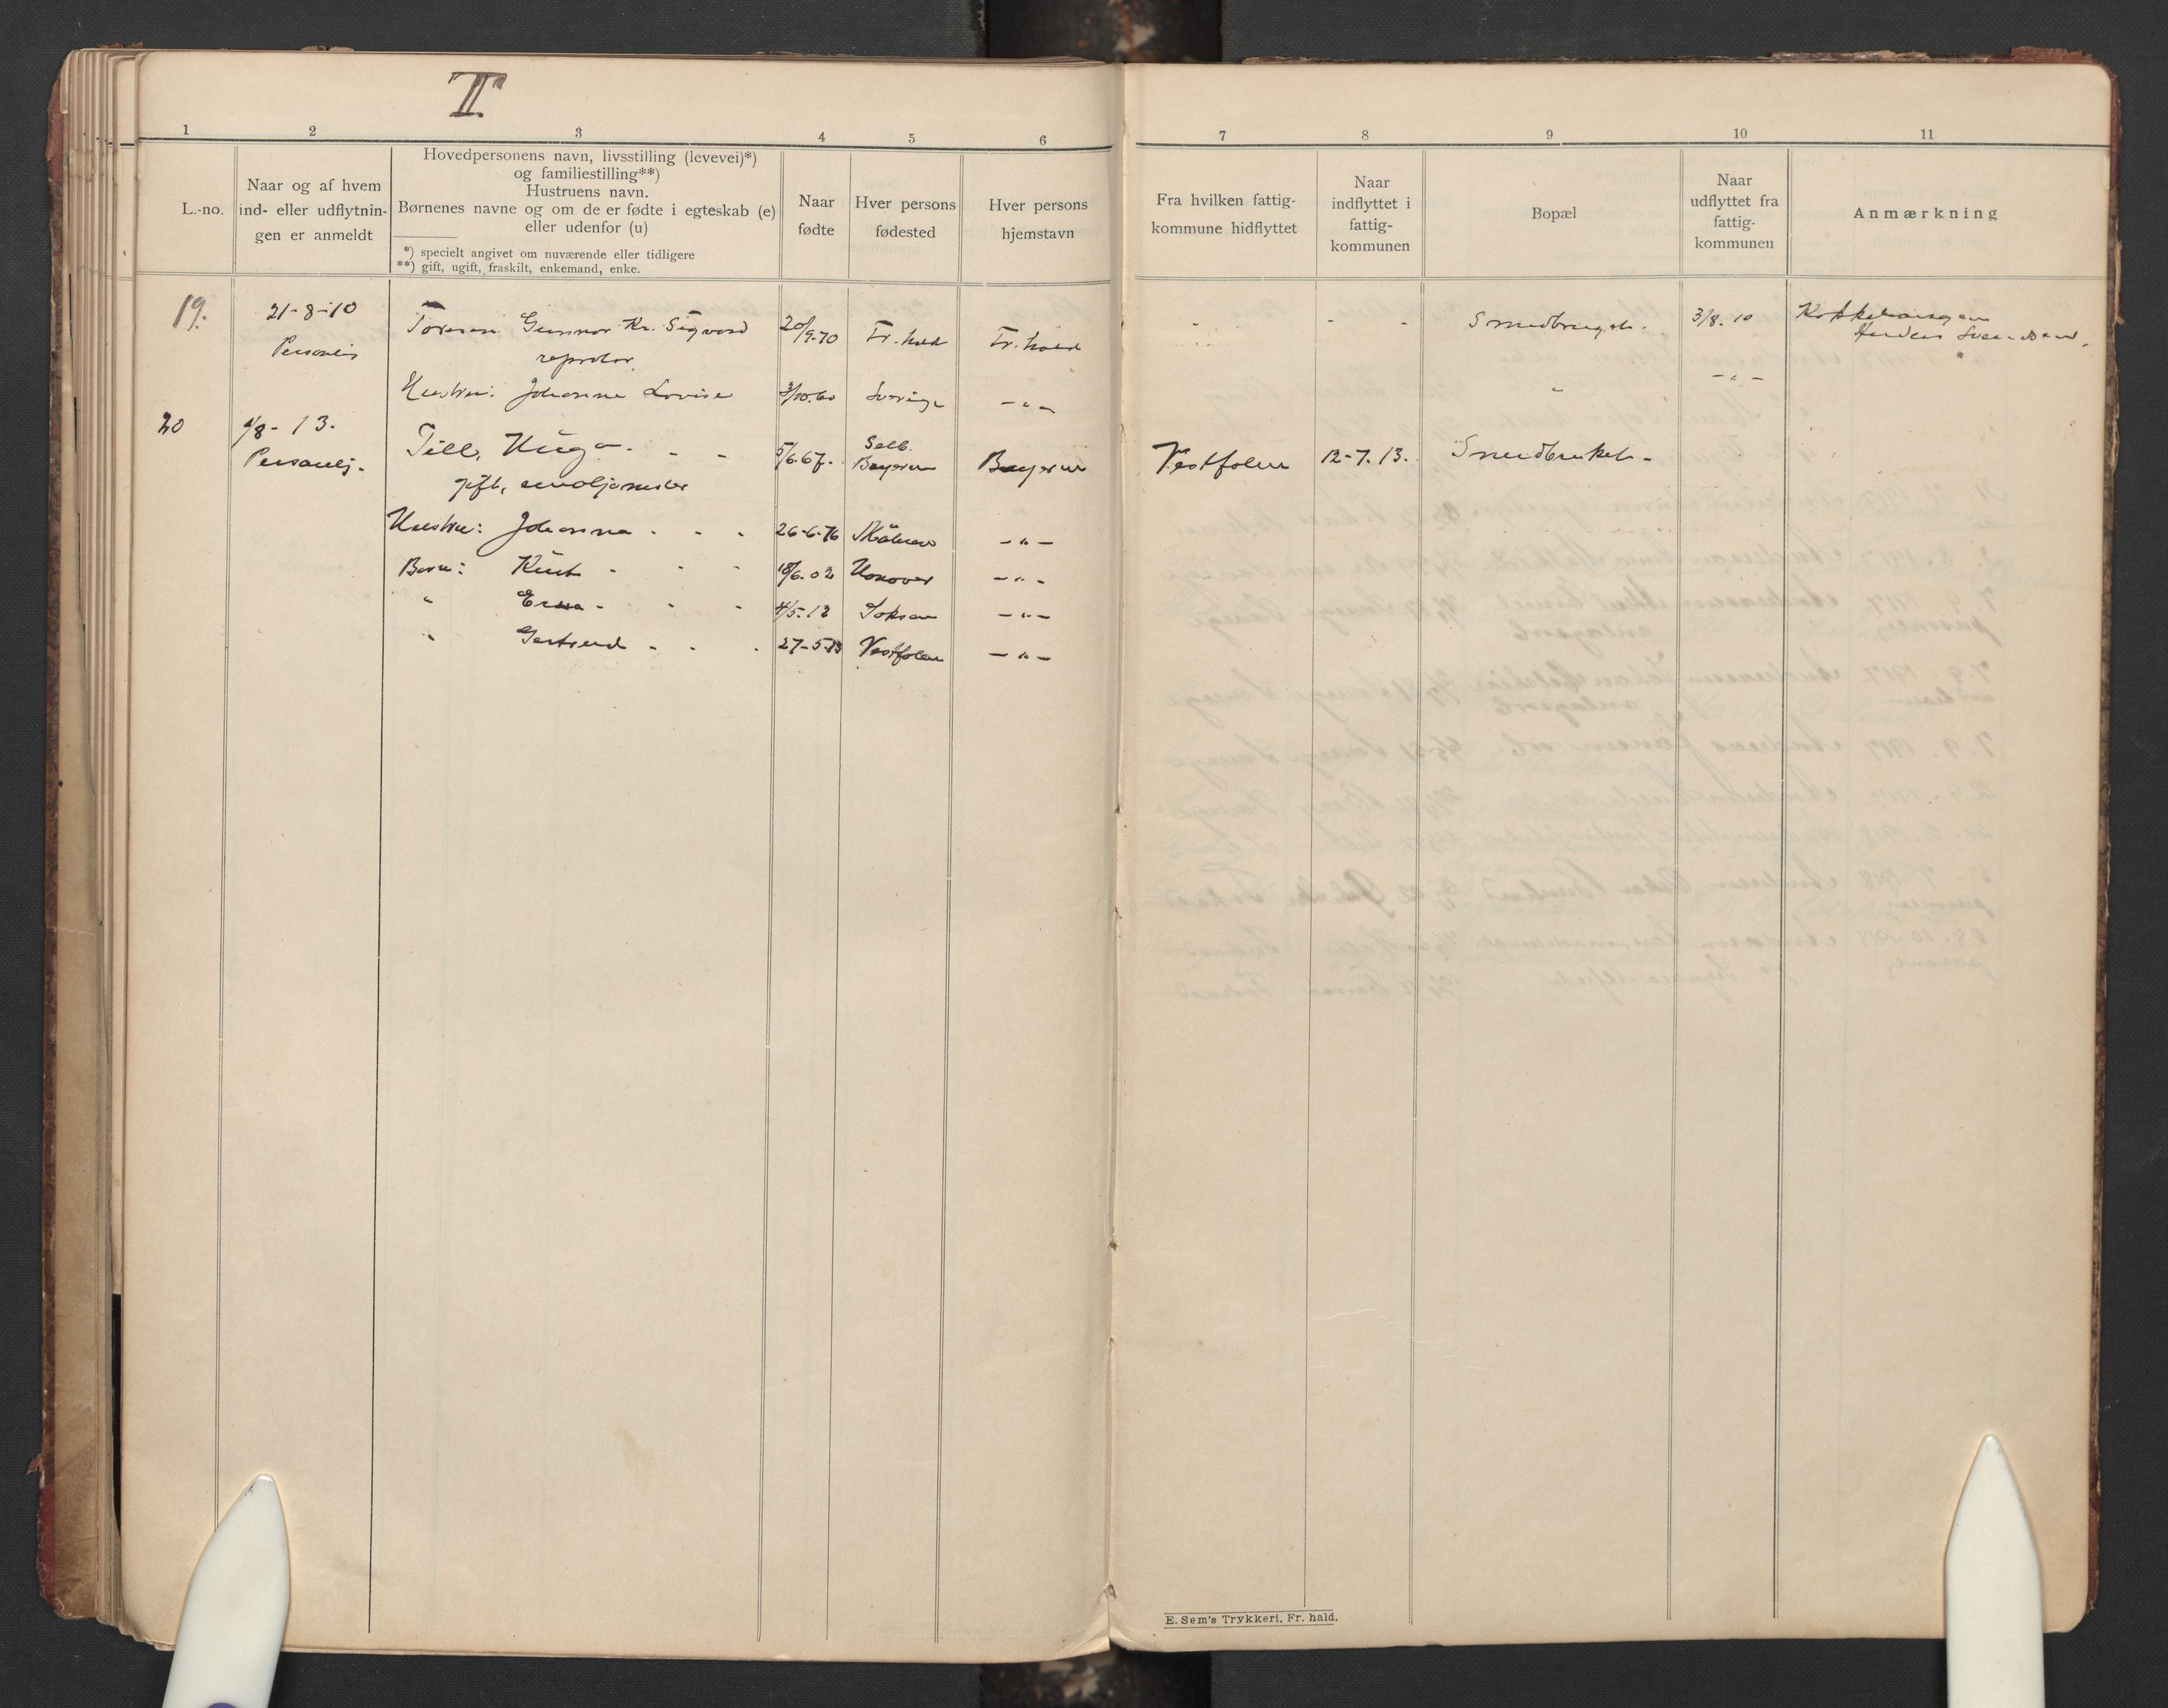 T
1 2 3 4 5 6 7 8 9 10 11
L.-no.
Naar og af hvem
ind- eller udflytnin-
gen er anmeldt
Hovedpersonens navn, livsstilling (levevei)*)
og familiestilling**)
Hustruens navn.
Børnenes navne og om de er fødte i egteskab (e)
eller udenfor (u)
*) specielt angivet om nuværende eller tidligere
**) gift, ugift, fraskilt, enkemand, enke.
Naar
fødte
Hver persons
fødested
Hver persons
hjemstavn
Fra hvilken fattig-
kommune hidflyttet
Naar
indflyttet i
fattig-
kommunen
Bopæl
Naar
udflyttet fra
fattig-
kommunen
Anmærkning
19. 21-8-10 Toresen Gunnar Kr. Sigvard 20/9-70 Fr. hald Fr. hald - - - 3/8. 10
Personlig
Hustru: Johanne Lovise 3/10.60 Sverige -"- " -"-
20 4/8-13. Till, Hugo - - 5/6.67. Selb. Bayern Bayern Vestfolen 12-7.13.
Personlig. gift,
Hustru: Johanna - - - 26-6-76 -"-
Barn: Kurt - - - 18/6.02 Hanover -"-
" Erna - - - 4/5.12 Soksen -"-
" Gertrud - - - 27-5-13 Vestfolen -"-
E. Sem's Trykkeri, Fr. hald.